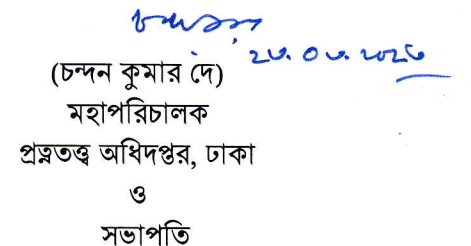 (চন্দন কুমার দে)
মহাপরিচালক
প্রত্নতত্ত্ব অধিদপ্তর, ঢাকা
ও
সভাপতি